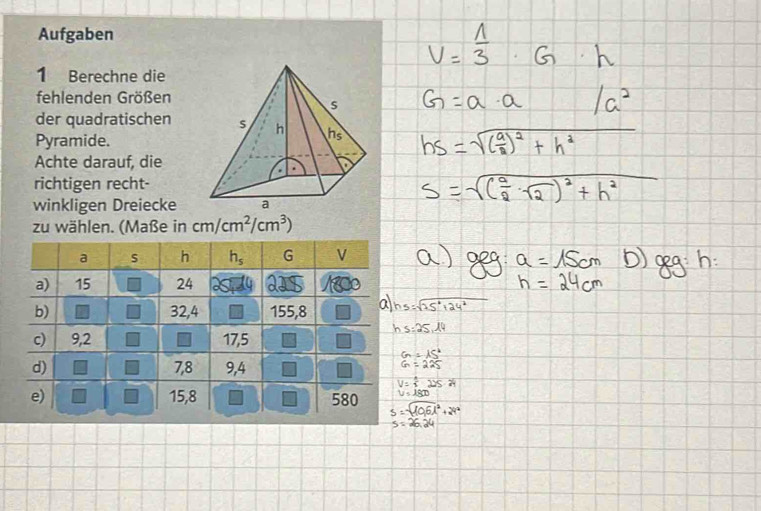 Aufgaben
1 Berechne die
fehlenden Größen
der quadratischen
Pyramide.
Achte darauf, die
richtigen recht-
winkligen Dreiecke
zu wählen. (Maße in cm/cm²/cm³)
s s h hs a
a s h hₛ G V
a) 15 □ 24 25,14 225 1800
b) □ □ 32,4 □ 155,8 □
c) 9,2 □ □ 17,5 □ □
d) □ □ 7,8 9,4 □ □
e) □ □ 15,8 □ □ 580
V = 1/3 · G · h
G = a · a /a²
hs = √((a/2)² + h²)
s = √((a/2 · √2)² + h²)
a) geg: a = 15cm b) geg: h:
h = 24cm
a) hs = √(7,5² + 24²)
hs = 25,14
G = 15²
G = 225
V = 1/3 · 225 · 24
V = 1800
s = √(10,61² + 24²)
s = 26,24